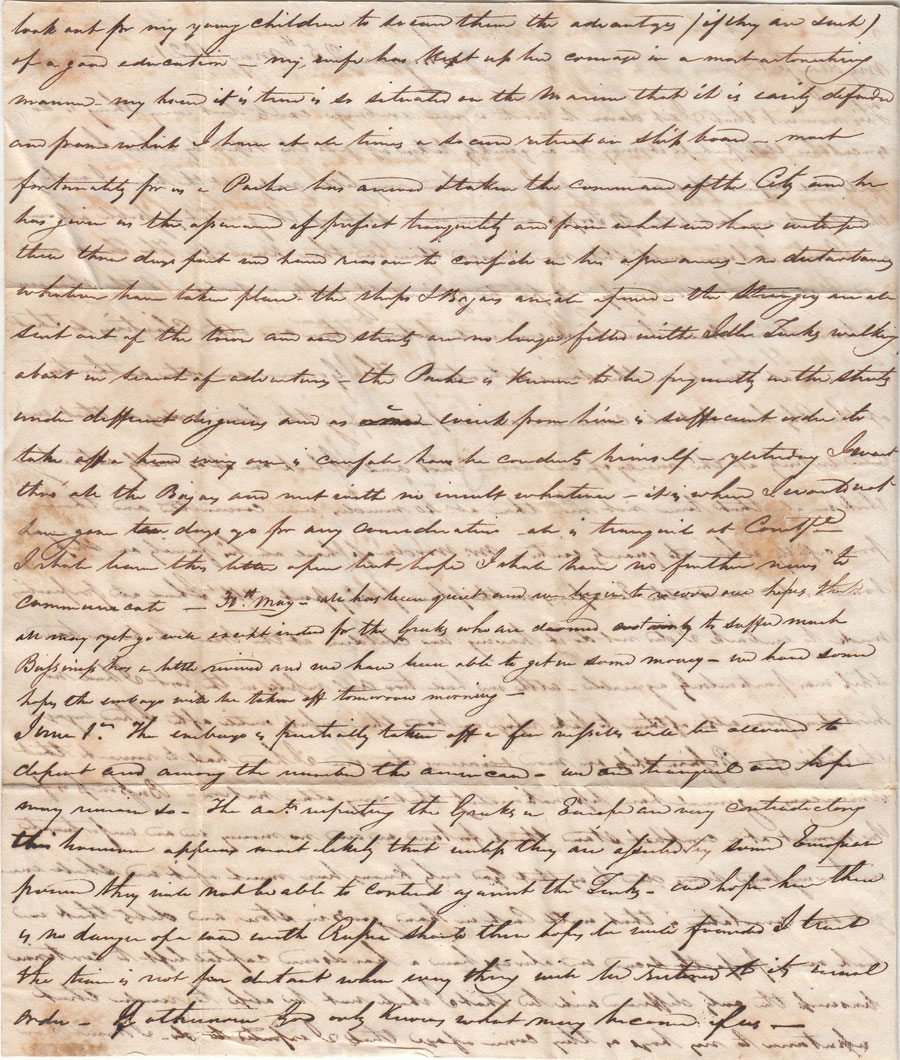 look out for my young children to secure them the advantages (if they are such)
of a good education – my wife has kept up her courage in a most astonishing
manner – my house it is true is so situated on the Marina that it is easily defended
and from which I have at all times a secure retreat on ship board – most
fortunately for us a Pacha has arrived & taken the command of the City and he
has given us the assurance of perfect tranquility and from what we have witnessed
these three days past we have reason to confide in his assurances – no disturbances
whatever have taken place – the shops & Bazars are all opened – the Strangers are all
sent out of the town and our streets are no longer filled with Idle Turks walking
about in search of adventures – the Pacha is known to be frequently in the streets
under different disguises and as a wink from him is sufficient order to
take off a head every one is careful how he conducts himself – yesterday I went
thro' all the Bazars and met with no insult whatever – it is where I would not
have gone ten days ago for any consideration – all is tranquil at Constple
I shall leave this letter open but hope I shall have no further news to
communicate – 30th May – all has been quiet and we begin to recover our hopes that
all may yet go well except indeed for the Greeks who are doomed to suffer much
Bussiness has a little revived and we have been able to get in some money – we have some
hopes the embargo will be taken off tomorrow morning –
June 1st The embargo is partially taken off a few vessels will be allowed to
depart and among the number the american – we are tranquil and hope
may remain so – The accts respecting the Greeks in Europe are very contradictory
this however appears most likely that unless they are assisted by some European
power they will not be able to contend against the Turks – we hope here there
is no danger of a war with Russia should these hopes be well founded I trust
the time is not far distant when every thing will be restored to its usual
order – If otherwise God only knows what may become of us –